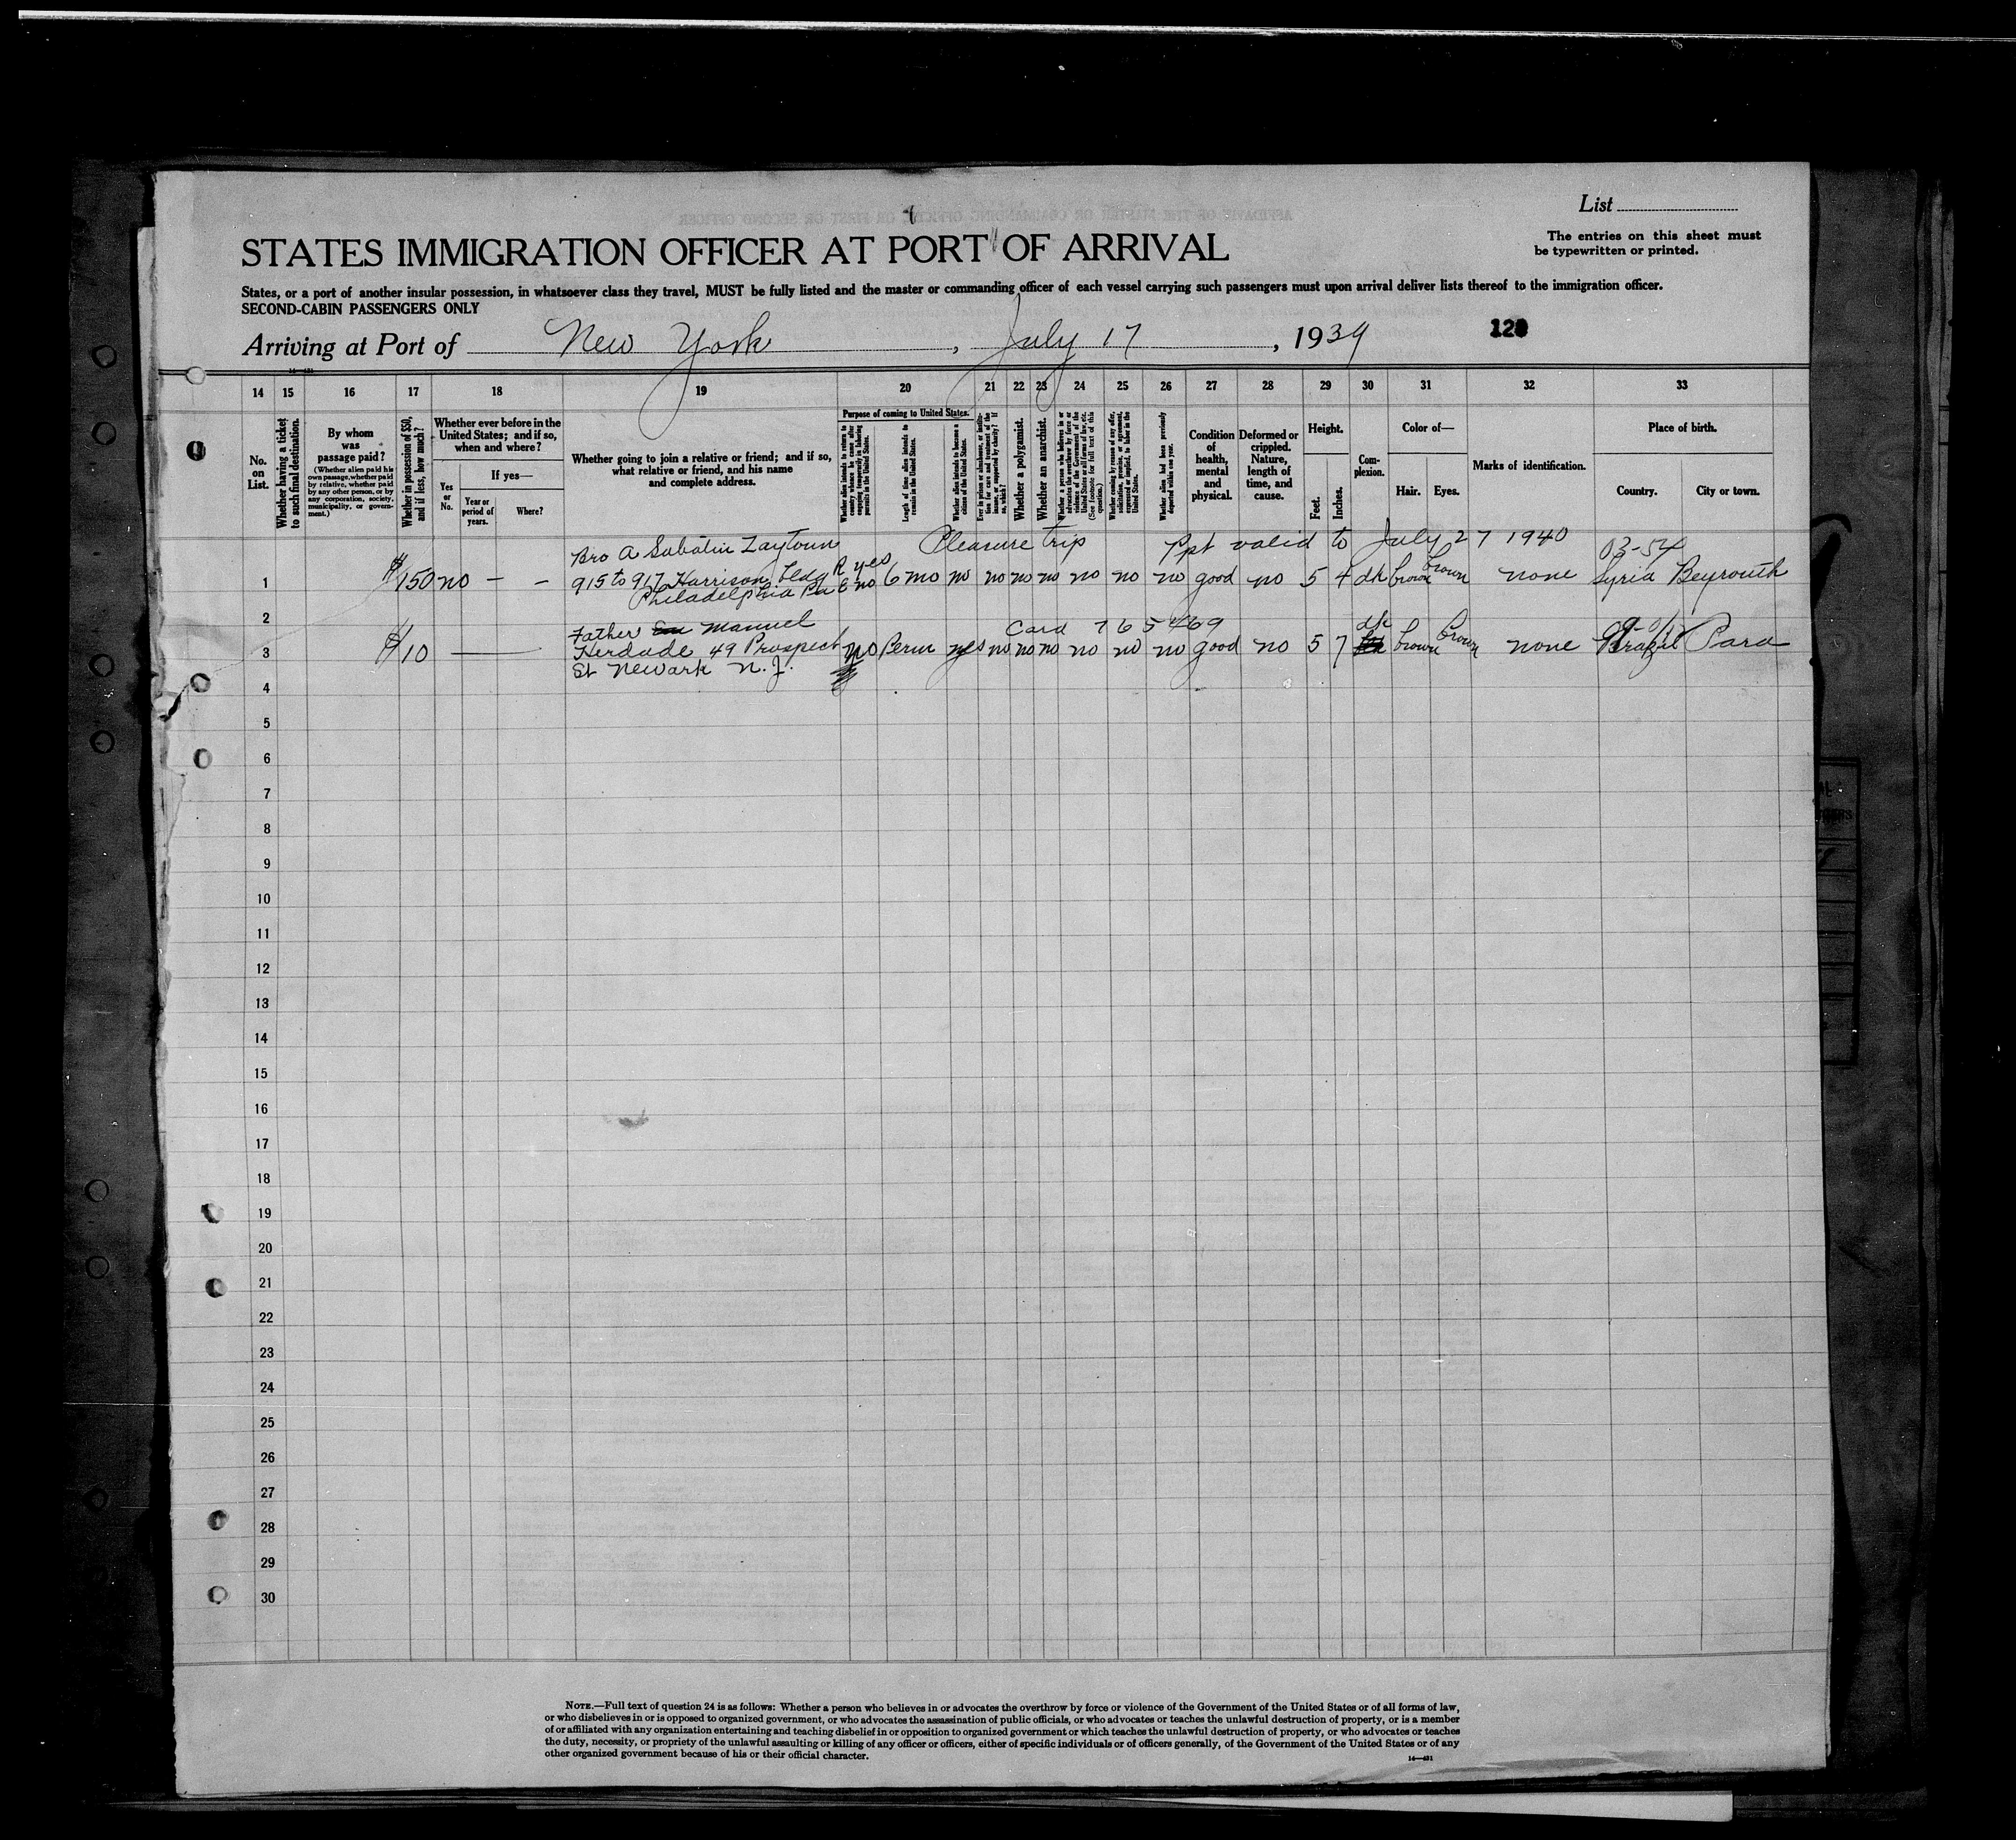 List
The entries on this sheet must
be typewritten or printed.
STATES IMMIGRATION OFFICER AT PORT OF ARRIVAL
States, or a port of another insular possession, in whatsoever class they travel, MUST be fully listed and the master or commanding officer of each vessel carrying such passengers must upon arrival deliver lists thereof to the immigration officer.
SECOND-CABIN PASSENGERS ONLY
Arriving at Port of New York, July 17, 1939
14 15 16 17 18 19 20 21 22 23 24 25 26 27 28 29 30 31 32 33
No. on List.
Whether having a ticket to such final destination.
By whom was passage paid?
(Whether alien paid his own passage, whether paid by relative, whether paid by any other person, or by any corporation, society, municipality, or government.)
Whether in possession of $50, and if less, how much?
Whether ever before in the United States; and if so, when and where?
Yes or No.
If yes—
Year or period of years.
Where?
Whether going to join a relative or friend; and if so, what relative or friend, and his name and complete address.
Purpose of coming to United States.
Whether alien intends to return to country whence he came after engaging temporarily in laboring pursuits in the United States.
Length of time alien intends to remain in the United States.
Whether alien intends to become a citizen of the United States.
Ever in prison or almshouse, or institution for care and treatment of the insane, or supported by charity? If so, which?
Whether a polygamist.
Whether an anarchist.
Whether a person who believes in or advocates the overthrow by force or violence of the Government of the United States or all forms of law, etc. (See footnote for full text of this question.)
Whether coming by reason of any offer, solicitation, promise, or agreement, expressed or implied, to labor in the United States.
Whether alien had been previously deported within one year.
Condition of health, mental and physical.
Deformed or crippled. Nature, length of time, and cause.
Height.
Feet.
Inches.
Complexion.
Color of—
Hair.
Eyes.
Marks of identification.
Place of birth.
Country.
City or town.
Bro A Sabatin Zaytoun Pleasure trip Ppt valid to July 27 1940 03-54
R yes
1 $150 no – – 915 to 917 Harrison bldg E no 6 mo no no no no no no no good no 5 4 dk brown brown none Syria Beyrouth
Philadelphia Pa
2 Father Manuel Card 765469 dk
3 $10 — Herdade 49 Prospect no Perm yes no no no no no no good no 5 7 brown brown none Brazil Para
St Newark N.J.
4
5
6
7
8
9
10
11
12
13
14
15
16
17
18
19
20
21
22
23
24
25
26
27
28
29
30
NOTE.—Full text of question 24 is as follows: Whether a person who believes in or advocates the overthrow by force or violence of the Government of the United States or of all forms of law,
or who disbelieves in or is opposed to organized government, or who advocates the assassination of public officials, or who advocates or teaches the unlawful destruction of property, or is a member
of or affiliated with any organization entertaining and teaching disbelief in or opposition to organized government or which teaches the unlawful destruction of property, or who advocates or teaches
the duty, necessity, or propriety of the unlawful assaulting or killing of any officer or officers, either of specific individuals or of officers generally, of the Government of the United States or of any
other organized government because of his or their official character.
14—431